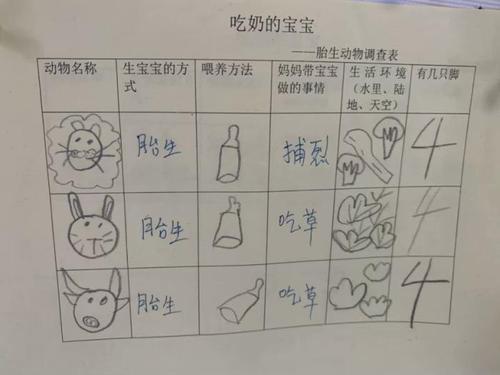 吃奶的宝宝
——胎生动物调查表
动物名称
生宝宝的方
式
喂养方法
妈妈带宝宝
做的事情
生活环境
（水里、陆
地、天空）
有几只脚
胎生
捕烈
4
胎生
吃草
4
胎生
吃草
4